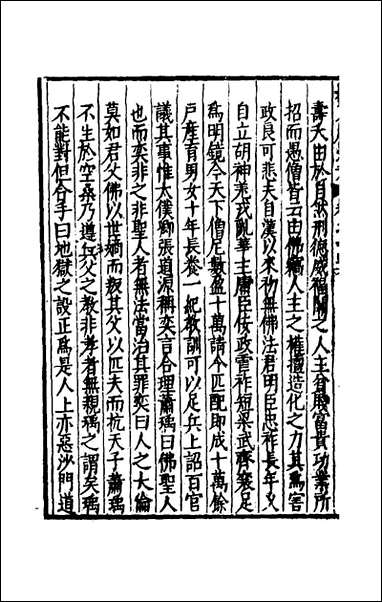 壽夭由於自然刑德威福關之人主貧賤富貴功業所
招而愚僧皆云由佛竊人主之權擅造化之力其爲害
政良可悲夫自漢以來初無佛法君明臣忠祚長年久
自立胡神羌戎亂華主庸臣佞政虐祚短梁武齊襄足
爲明鏡今天下僧尼數盈十萬請令匹配即成十萬餘
户產育男女十年長養一紀教訓可以足兵上詔百官
議其事惟太僕卿張道源稱奕言合理蕭瑀曰佛聖人
也而奕非之非聖人者無法當治其罪奕曰人之大倫
莫如君父佛以世嫡而叛其父以匹夫而抗天子蕭瑀
不生於空桑乃遵無父之教非孝者無親瑀之謂矣瑀
不能對但合手曰地獄之設正爲是人上亦惡沙門道